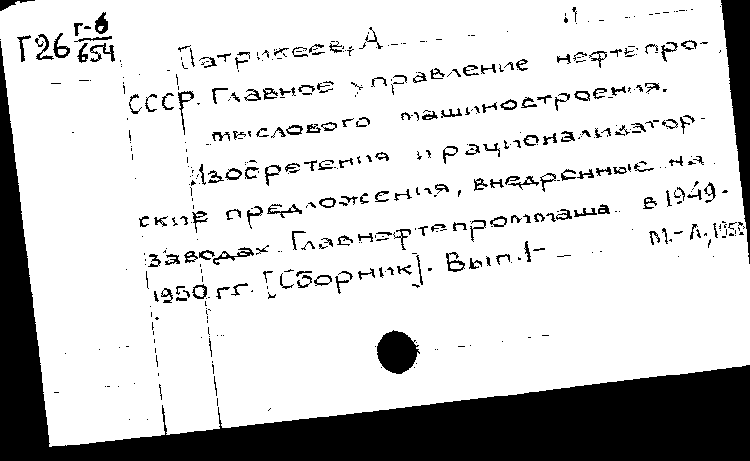 Г26 Г-6/654
Патрикеев, А
СССР. Главное управление нефтепро-
мыслового машиностроения.
Изобретения и рационализатор-
ские предложения, внедренные на
заводах Главнефтепроммаша в 1949-
1950 гг. [Сборник]. Вып. 1-
М.-Л., 1953